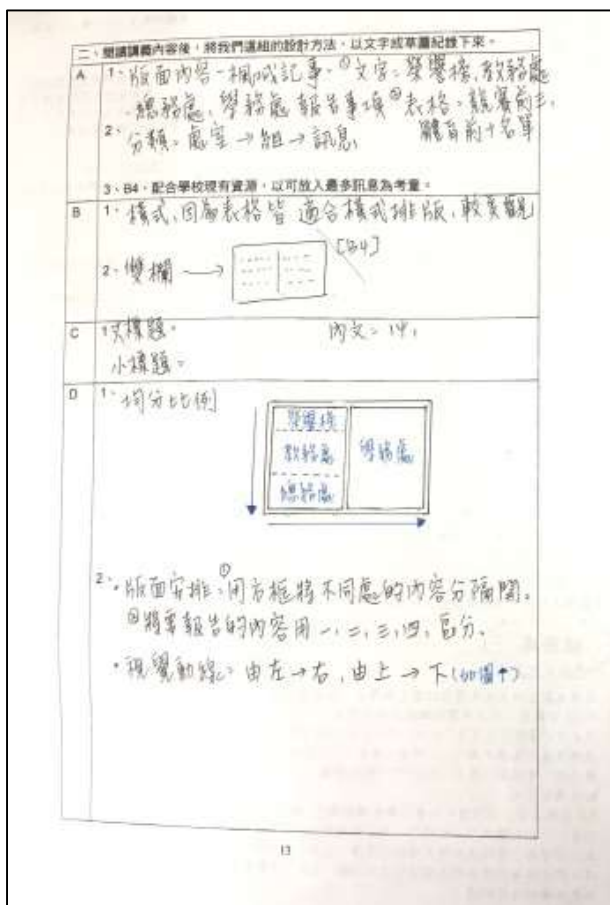 二、閱讀講義內容後，將我們這組的設計方法，以文字或草圖紀錄下來。
A
1、版面內容-楓城記事。①文字：榮譽榜、教務處
、總務處、學務處報告事項 ②表格：競賽前三、
體育前十名單
2、分類：處室→組→訊息
3、B4，配合學校現有資源，以可放入最多訊息為考量。
B
1、橫式，因為表格皆適合橫式排版，較美觀
[B4]
2、雙欄 →
C
1大標題：
內文：14,
小標題：
D
1、均分比例
榮譽榜
教務處
總務處
學務處
2、•版面安排：①用方框將不同處的內容分隔開。
②將要報告的內容用一、二、三、四、區分。
•視覺動線：由左→右，由上→下(如圖↑)
13